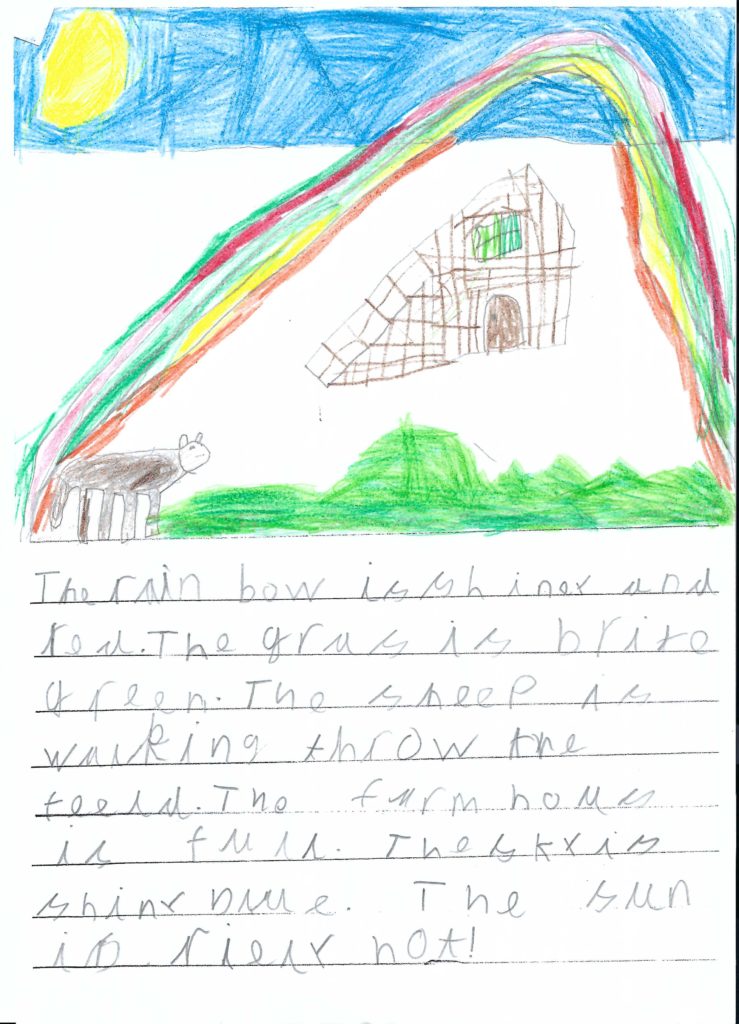 The rain bow is shiney and
red. The gras is brite
green. The sheep is
walking throw the
feeld. The farm hous
is full. The sky is
shiny blue. The sun
is riely hot!